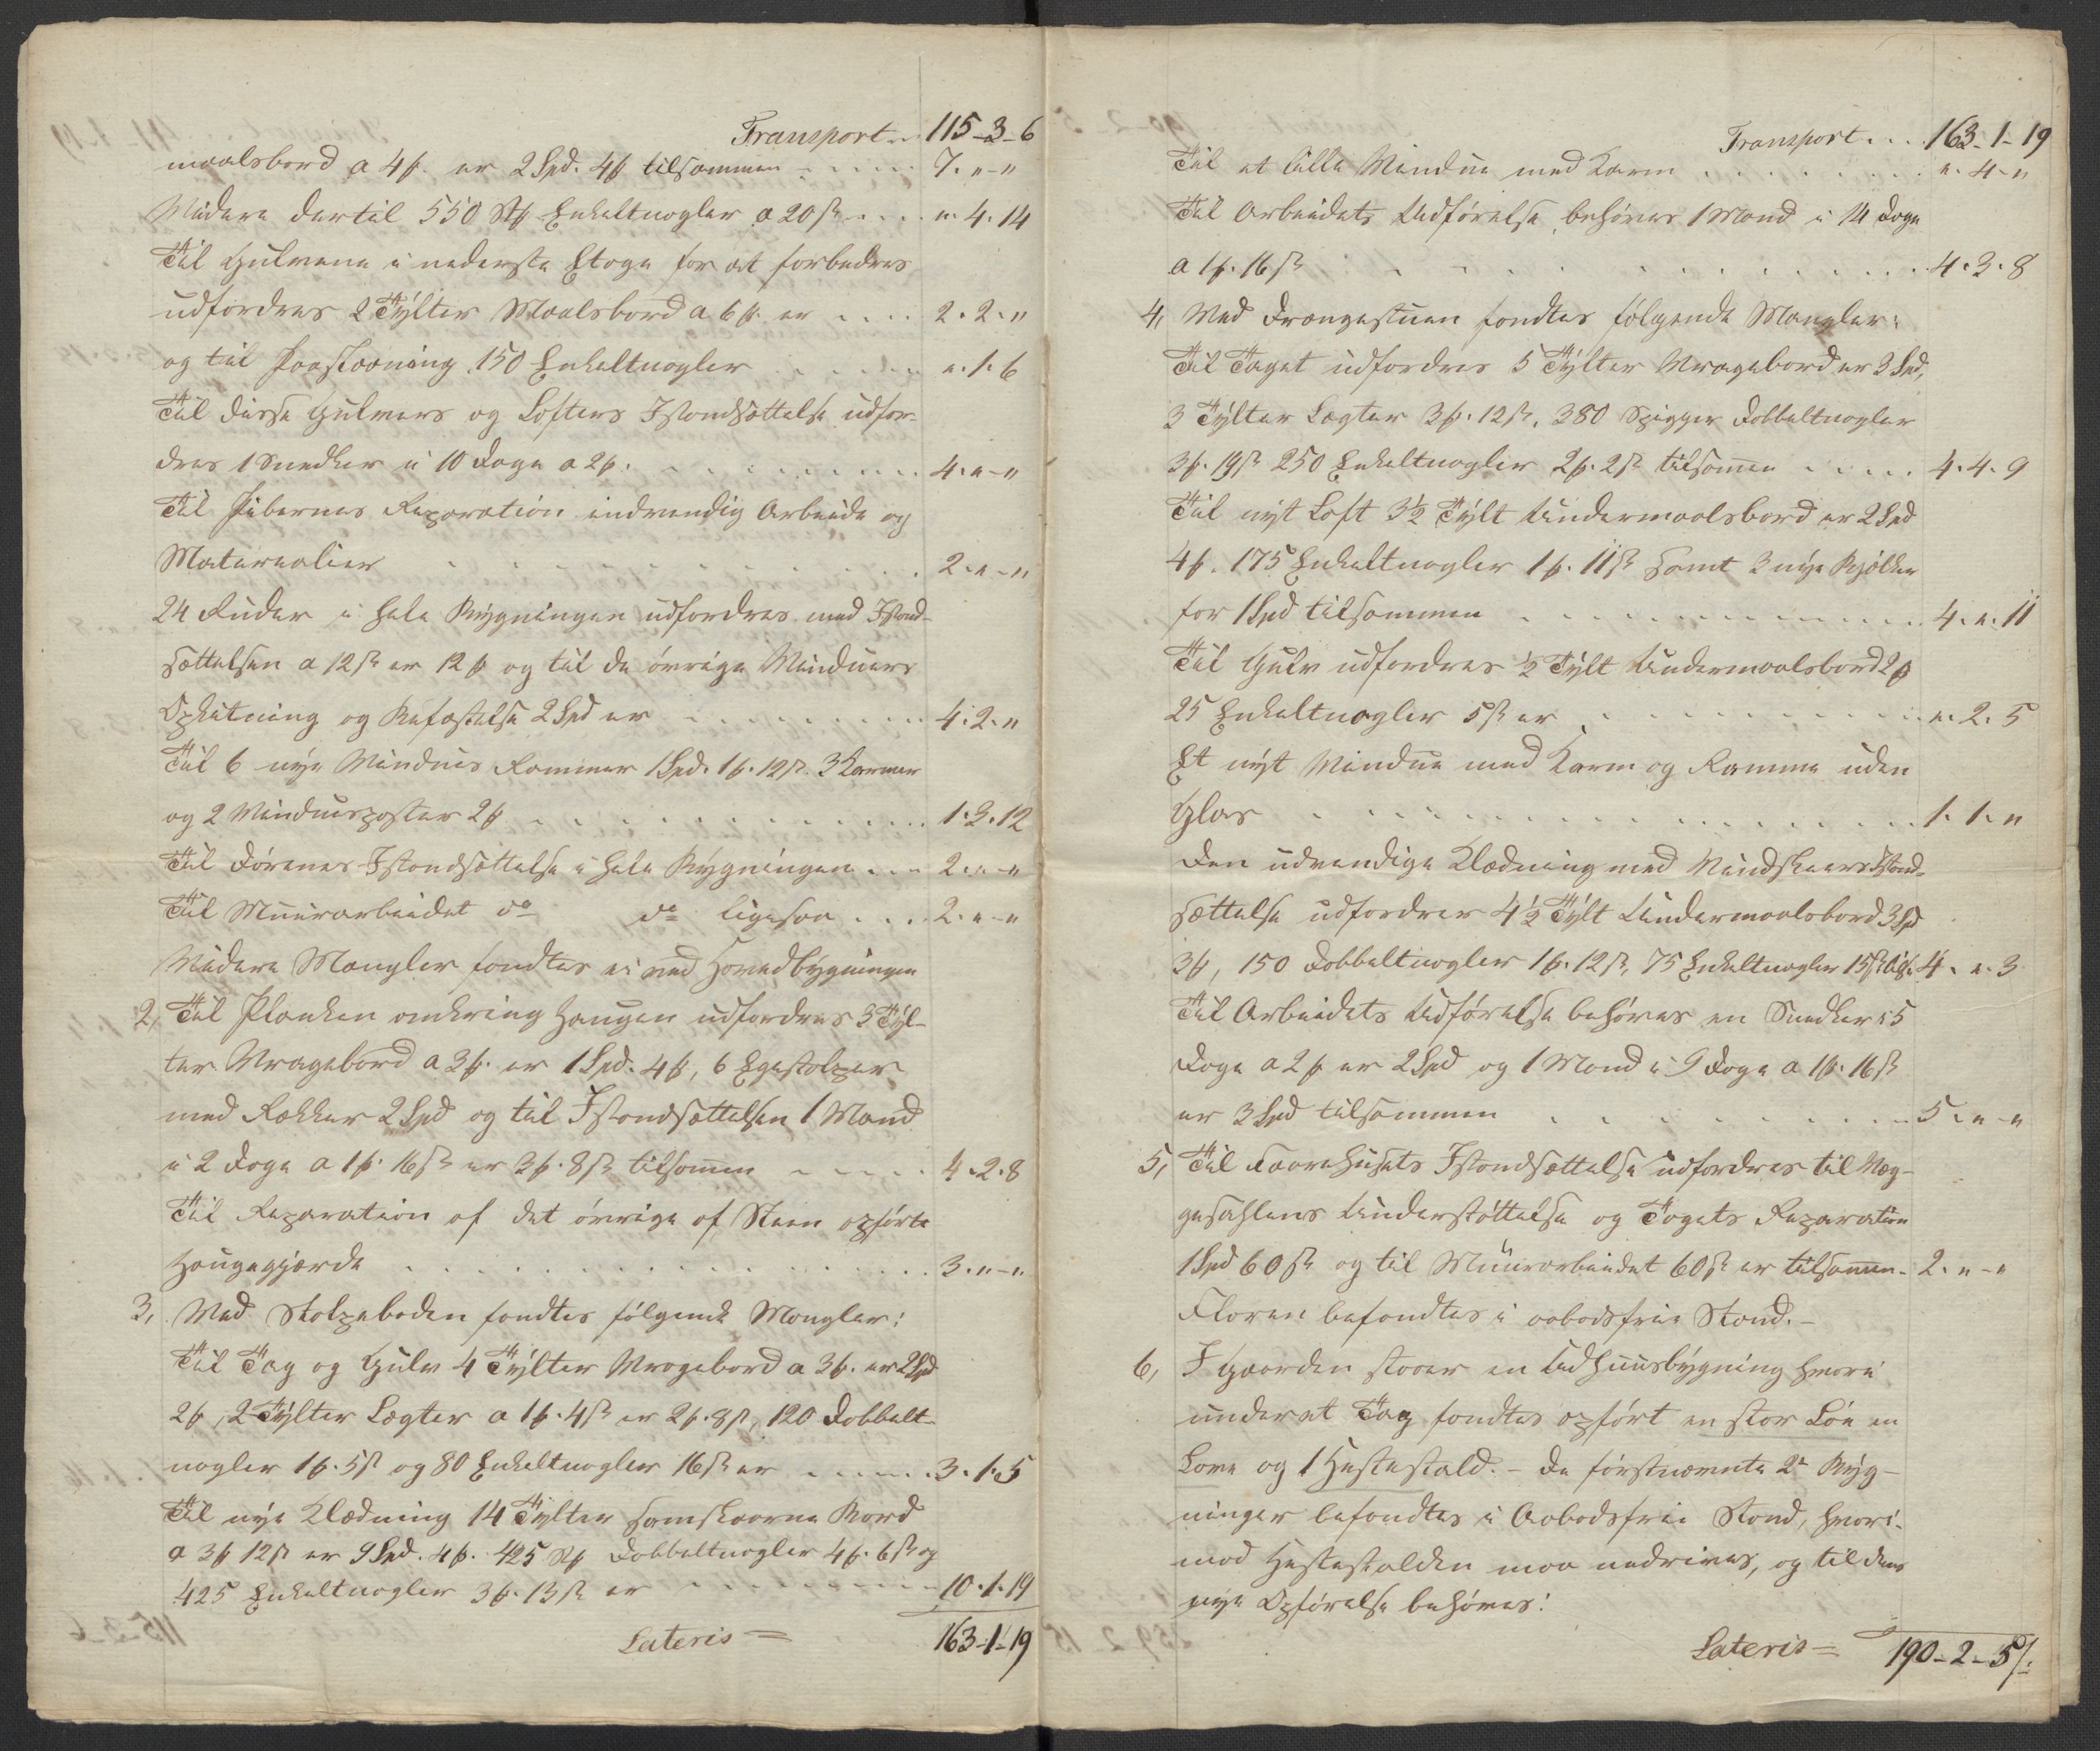 Transport . . 115-3-6
maalsbord a 4ß. er 2 Spd. 4ß tilsammen . . . . 7. „-„
Videre dertil 550 St Enkeltnagler a 20 sk . . . „. 4. 14
Til Gulvene i nederste Etage for at forbedres
udfordres 2 Tÿlter Maalsbord a 6ß. er . . . . 2. 2. „
og til Paaslaaning 150 Enkeltnagler . . . . . „. 1. 6
Til disse Gulvers og Lofters Istandsættelse udfor-
dres 1 Snedker i 10 Dage a 2ß. . . . . . . . . 4. „-„
Til Pibernes Reparation indvendig Arbeide og
Materealier . . . . . . . . . . 2. „-„
24 Ruder i hele Bÿgningen udfordres med Istand-
sættelsen a 12 sk er 12ß og til de övrige Vinduers
Opkitning og Befæstelse 2 Spd er . . . . . . . 4. 2. „
Til 6 nÿe Vindues Rammer 1 Spd. 1ß. 12 sk. 3 Karmer
og 2 Vinduesposter 2ß . . . . . . . . . . 1. 3. 12
Til Dörenes Istandsættelse i hele Bÿgningen . . . 2. „-„
Til Muurarbeidet do do ligesaa . . . . 2. „-„
Videre Mangler fandtes ei ved Hovedbÿgningen
2, Til Planken omkring Haugen udfordres 3 Tÿl-
ter Vragebord a 3ß. er 1 Spd. 4ß, 6 Egestolper
med Rækker 2 Spd og til Istandsættelsen 1 Mand
i 2 Dage a 1ß. 16 sk er 3ß. 8 sk tilsammen . . . . 4. 2. 8
Til Reparation af det övrige af Steen opförte
Haugegjærde . . . . . . . . . . . 3. „-„
3, Ved Stolpeboden fandtes fölgende Mangler:
Til Tag og Gulv 4 Tÿlter Vragebord a 3ß. er 2 Spd
2ß, 2 Tÿlter Lægter a 1ß. 4 sk er 2ß. 8 sk, 120 Dobbelt-
nagler 1ß. 5 sk og 80 Enkeltnagler 16 sk er . . . . . 3. 1. 5
Til nÿe Klædning 14 Tÿlter samskaarne Bord
a 3ß 12 sk er 9 Spd. 4ß. 425 St Dobbeltnagler 4ß. 6 sk og
425 Enkeltnagler 3ß. 13 sk er . . . . . . . . 10. 1. 19
Lateris = 163-1-19
Transport . . . 163-1-19
Til et lille Vindue med Karm . . . . . . . . „. 4-„
Til Arbeidets Udförelse behöves 1 Mand i 14 Dage
a 1ß. 16 sk . . . . . . . . . . . . 4. 3. 8
4, Ved Drængestuen fandtes fölgende Mangler:
Til Taget udfordres 5 Tÿlter Vragebord er 3 Spd,
3 Tÿlter Lægter 3ß. 12 sk, 380 Spigger Dobbeltnagler
3ß. 19 sk 250 Enkeltnagler 2ß. 2 sk tilsammen . . . . . 4. 4. 9
Til nÿt Loft 3½ Tÿlt Undermaalsbord er 2 Spd
4ß. 175 Enkeltnagler 1ß. 11 sk samt 3 nÿe Bjelker
for 1 Spd tilsammen . . . . . . . . . . 4. „. 11
Til Gulv udfordres ½ Tÿlt Undermaalsbord 2ß
25 Enkeltnagler 5 sk er . . . . . . . . . . „. 2. 5
Et nÿt Vindue med Karm og Ramme uden
Glas . . . . . . . . . . . . . . 1. 1. „
Den udvendige Klædning med Vindskeers Istand-
sættelse udfordrer 4½ Tÿlt Undermaalsbord 3 Spd
3ß, 150 Dobbeltnagler 1ß. 12 sk, 75 Enkeltnagler 15 sk 4. „. 3
Til Arbeidets Udförelse behöves en Snedker i 5
Dage a 2ß er 2 Spd og 1 Mand i 9 Dage a 1ß. 16 sk
er 3 Spd tilsammen . . . . . . . . . . 5. „-„
5, Til Faarehusets Istandsættelse udfordres til Væg-
gesahlens Understöttelse og Tagets Reparation
1 Spd 60 sk og til Muurarbeidet 60 sk er tilsammen. 2. „-„
Floren befandtes i aabodsfrie Stand.-
6, I Gaarden staaer en Udhuusbÿgning hvori
under et Tag fandtes opfört en stor Löe en
Love og 1 Hestestald. - De förstnævnte 2de Bÿg-
ninger befandtes i Aabodsfrie Stand, hvori-
mod Hestestalden maa nedrives, og til dens
nÿe Opförelse behöves:
Lateris = 190-2-5/.